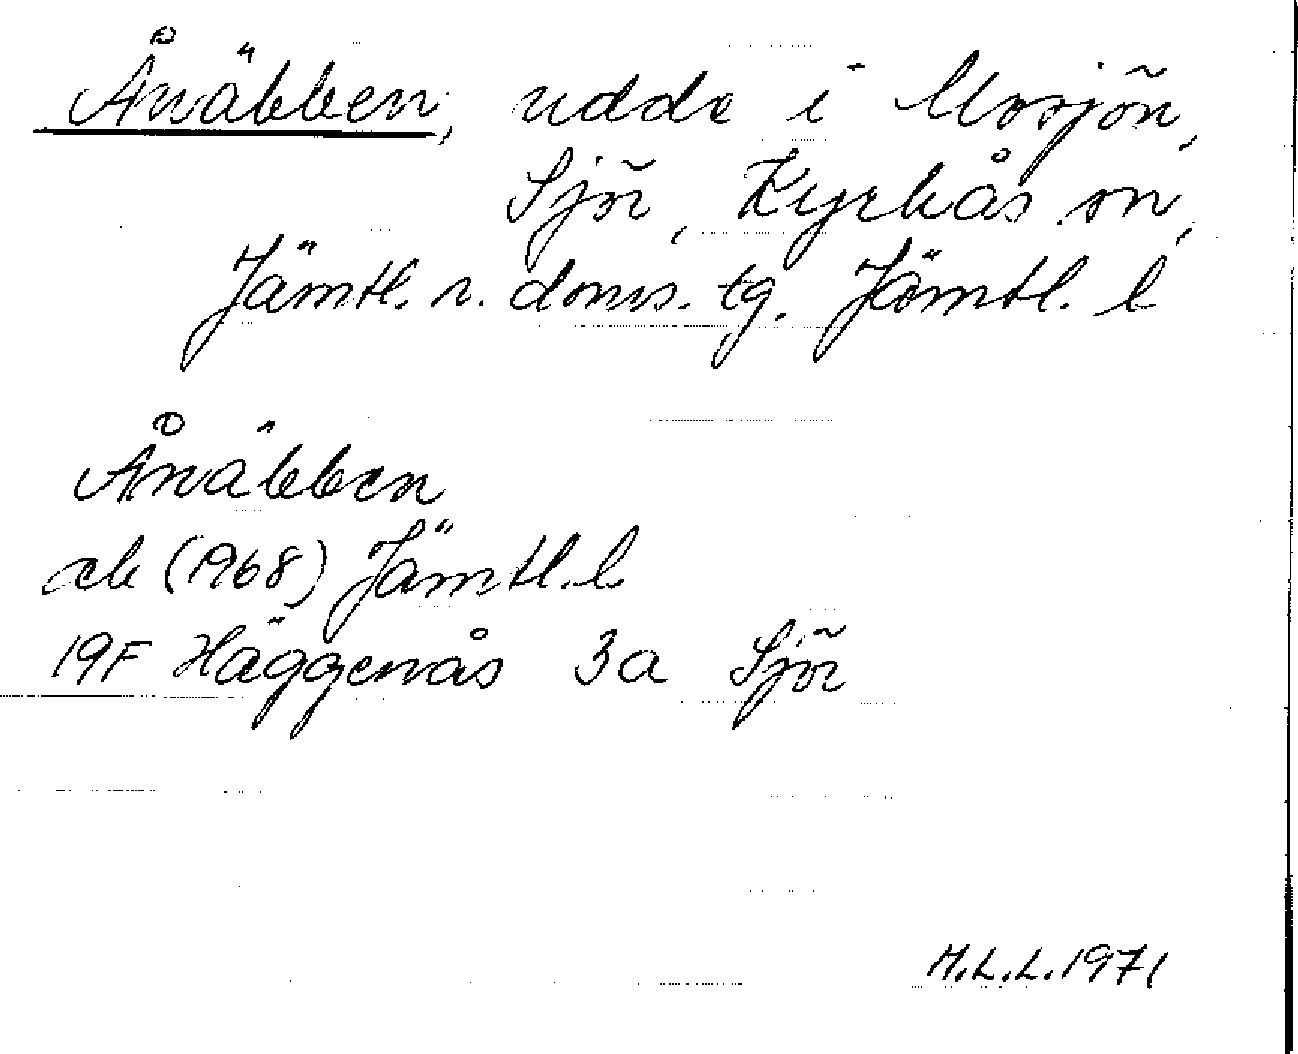 Ånäbben, udde i Mosjön,
Sjör, Kyrkås sn,
Jämtl. n. doms. tg. Jämtl. l
Ånäbben
ek (1968) Jämtl. l
19F Häggenås 3a Sjör
M.L.L. 1971